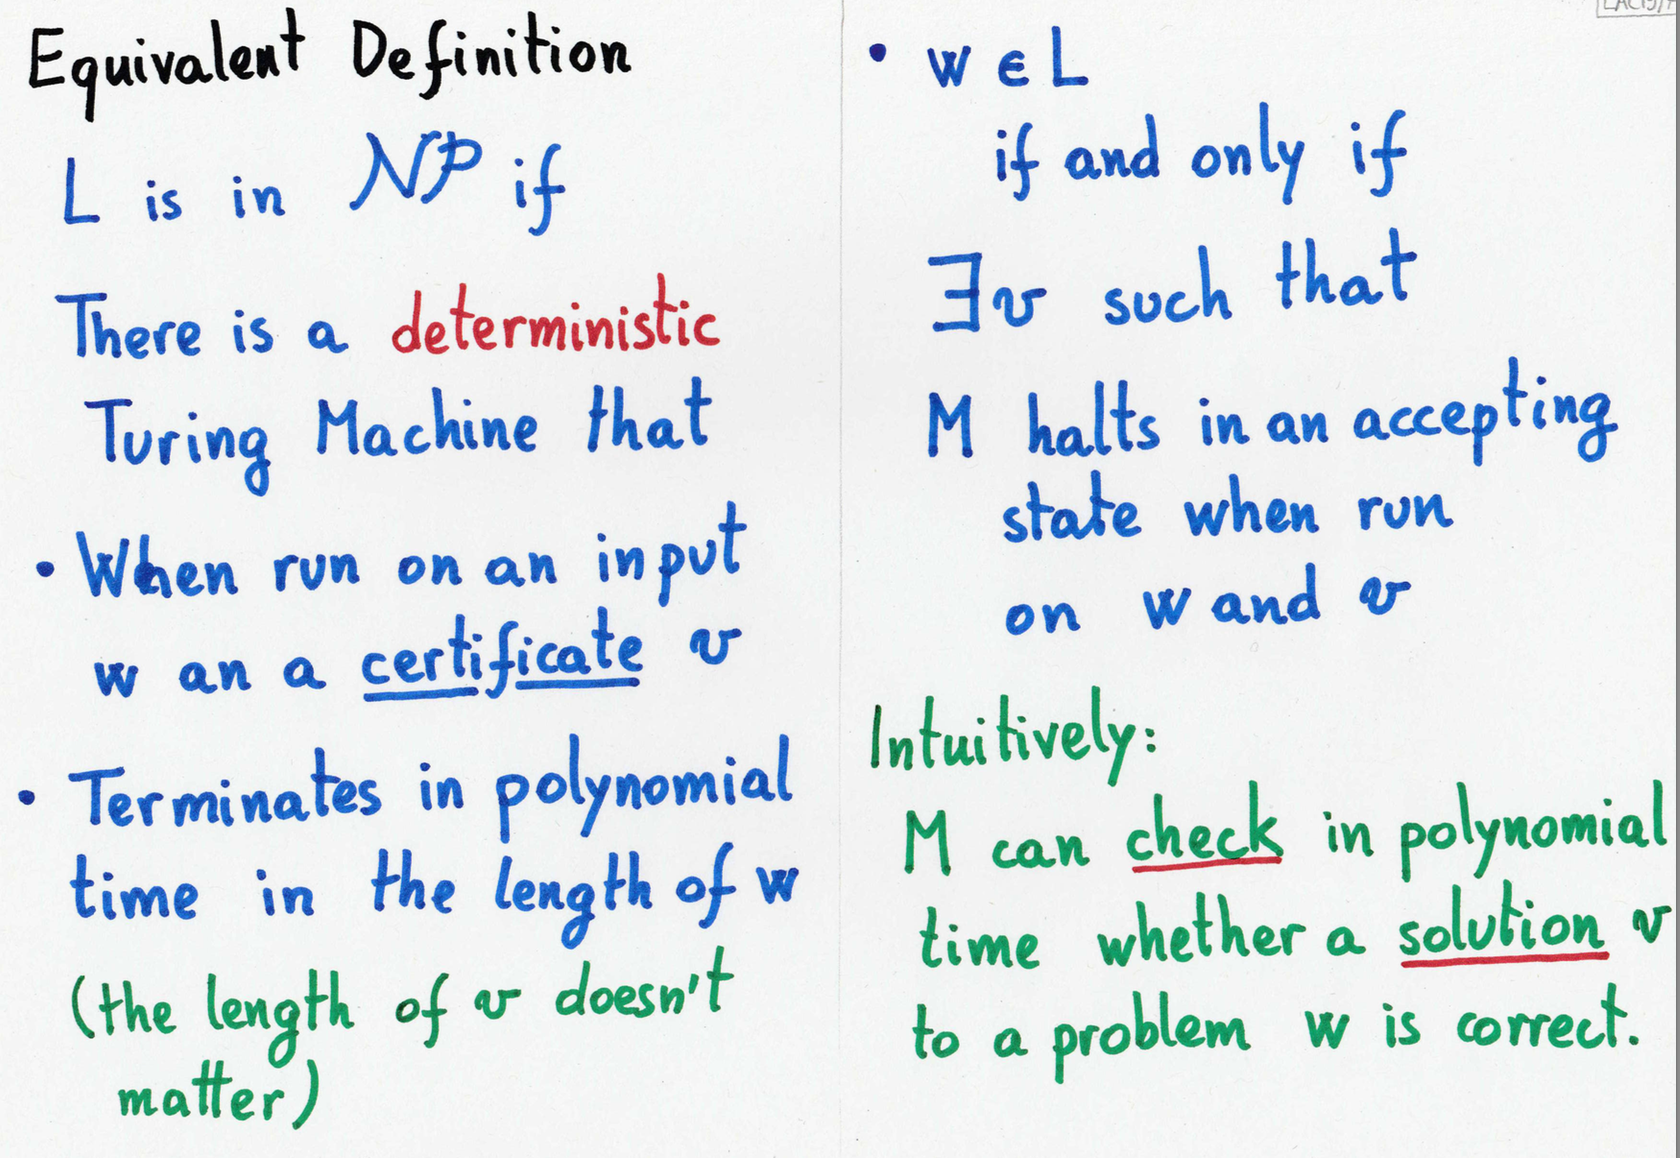 Equivalent Definition
L is in NP if
There is a deterministic
Turing Machine that
• When run on an input
w an a certificate v
• Terminates in polynomial
time in the length of w
(the length of v doesn't
matter)
• w ∈ L
if and only if
∃v such that
M halts in an accepting
state when run
on w and v
Intuitively:
M can check in polynomial
time whether a solution v
to a problem w is correct.